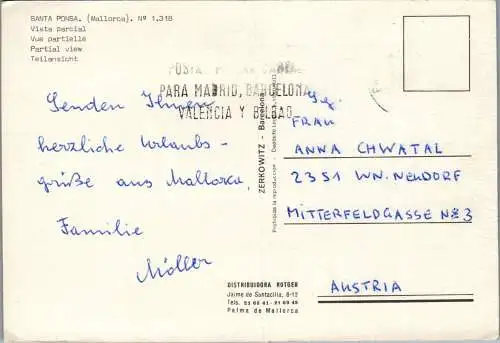 SANTA PONSA. (Mallorca). Nº 1.318
Vista parcial
Vue partielle
Partial view
Teilansicht
PARA MADRID, BARCELONA,
VALENCIA Y BILBAO
Senden Ihnen
herzliche Urlaubs-
grüße aus Mallorca,
Familie
Möller
ZERKOWITZ - Barcelona
FRAU
ANNA CHWATAL
2351 WN. NEUDORF
MITTERFELDGASSE Nº 3
AUSTRIA
DISTRIBUIDORA ROTGER
Jaime de Santacilia, 8-12
Palma de Mallorca